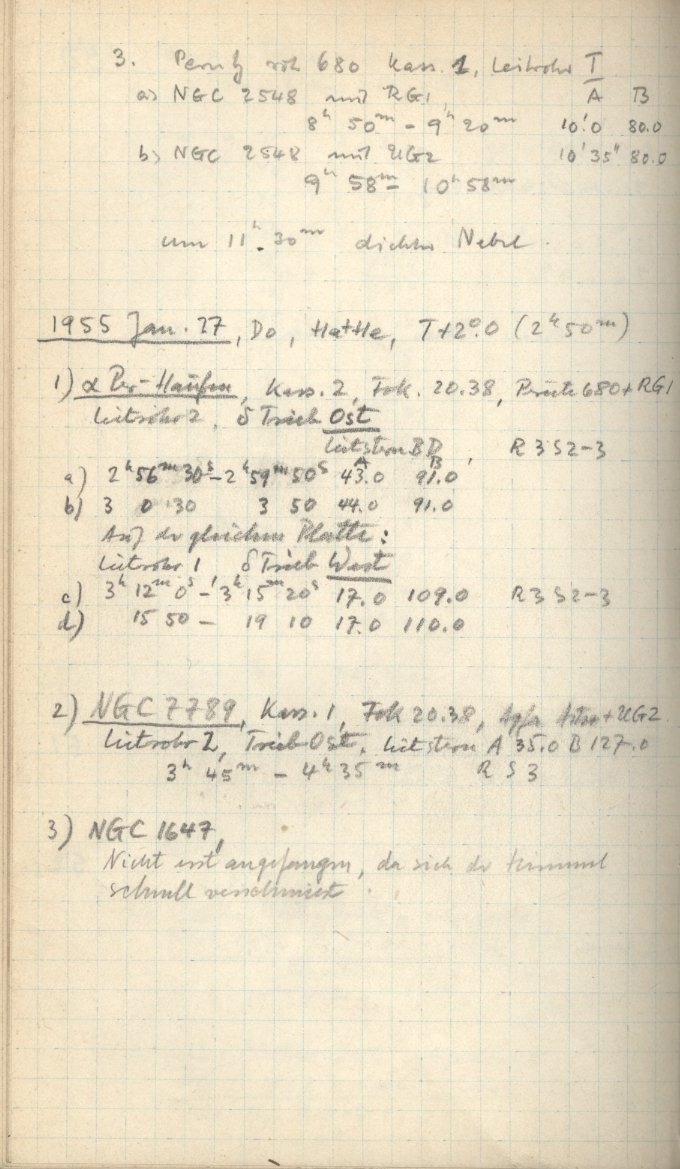 3. Perutz rot 680 Kass. 1, Leitrohr I
a) NGC 2548 mit RG1, A B
8ʰ 50ᵐ - 9ʰ 20ᵐ 10'.0 80.0
b) NGC 2548 mit UG2 10'35" 80.0
9ʰ 58ᵐ - 10ʰ 58ᵐ
um 11ʰ.30ᵐ dichter Nebel.
1955 Jan. 27, Do, Ha+He, T+2°.0 (2ʰ50ᵐ)
1) α Per-Haufen, Kass. 2, Fok. 20.38, Perutz 680+RG1
Leitrohr 2, δ Trieb Ost
Leitstern BD, R 3 S 2-3
A B
a) 2ʰ56ᵐ30ˢ-2ʰ59ᵐ50ˢ 43.0 91.0
b) 3 0 30 3 50 44.0 91.0
Auf der gleichen Platte:
Leitrohr 1 δ Trieb West
c) 3ʰ12ᵐ0ˢ-3ʰ15ᵐ20ˢ 17.0 109.0 R3 S2-3
d) 15 50 - 19 10 17.0 110.0
2) NGC 7789, Kass. 1, Fok 20.38, Agfa Astro+UG2
Leitrohr 2, Trieb Ost, Leitstern A 35.0 B 127.0
3ʰ 45ᵐ - 4ʰ 35ᵐ R S 3
3) NGC 1647,
Nicht erst angefangen, da sich der Himmel
schnell verschmiert.